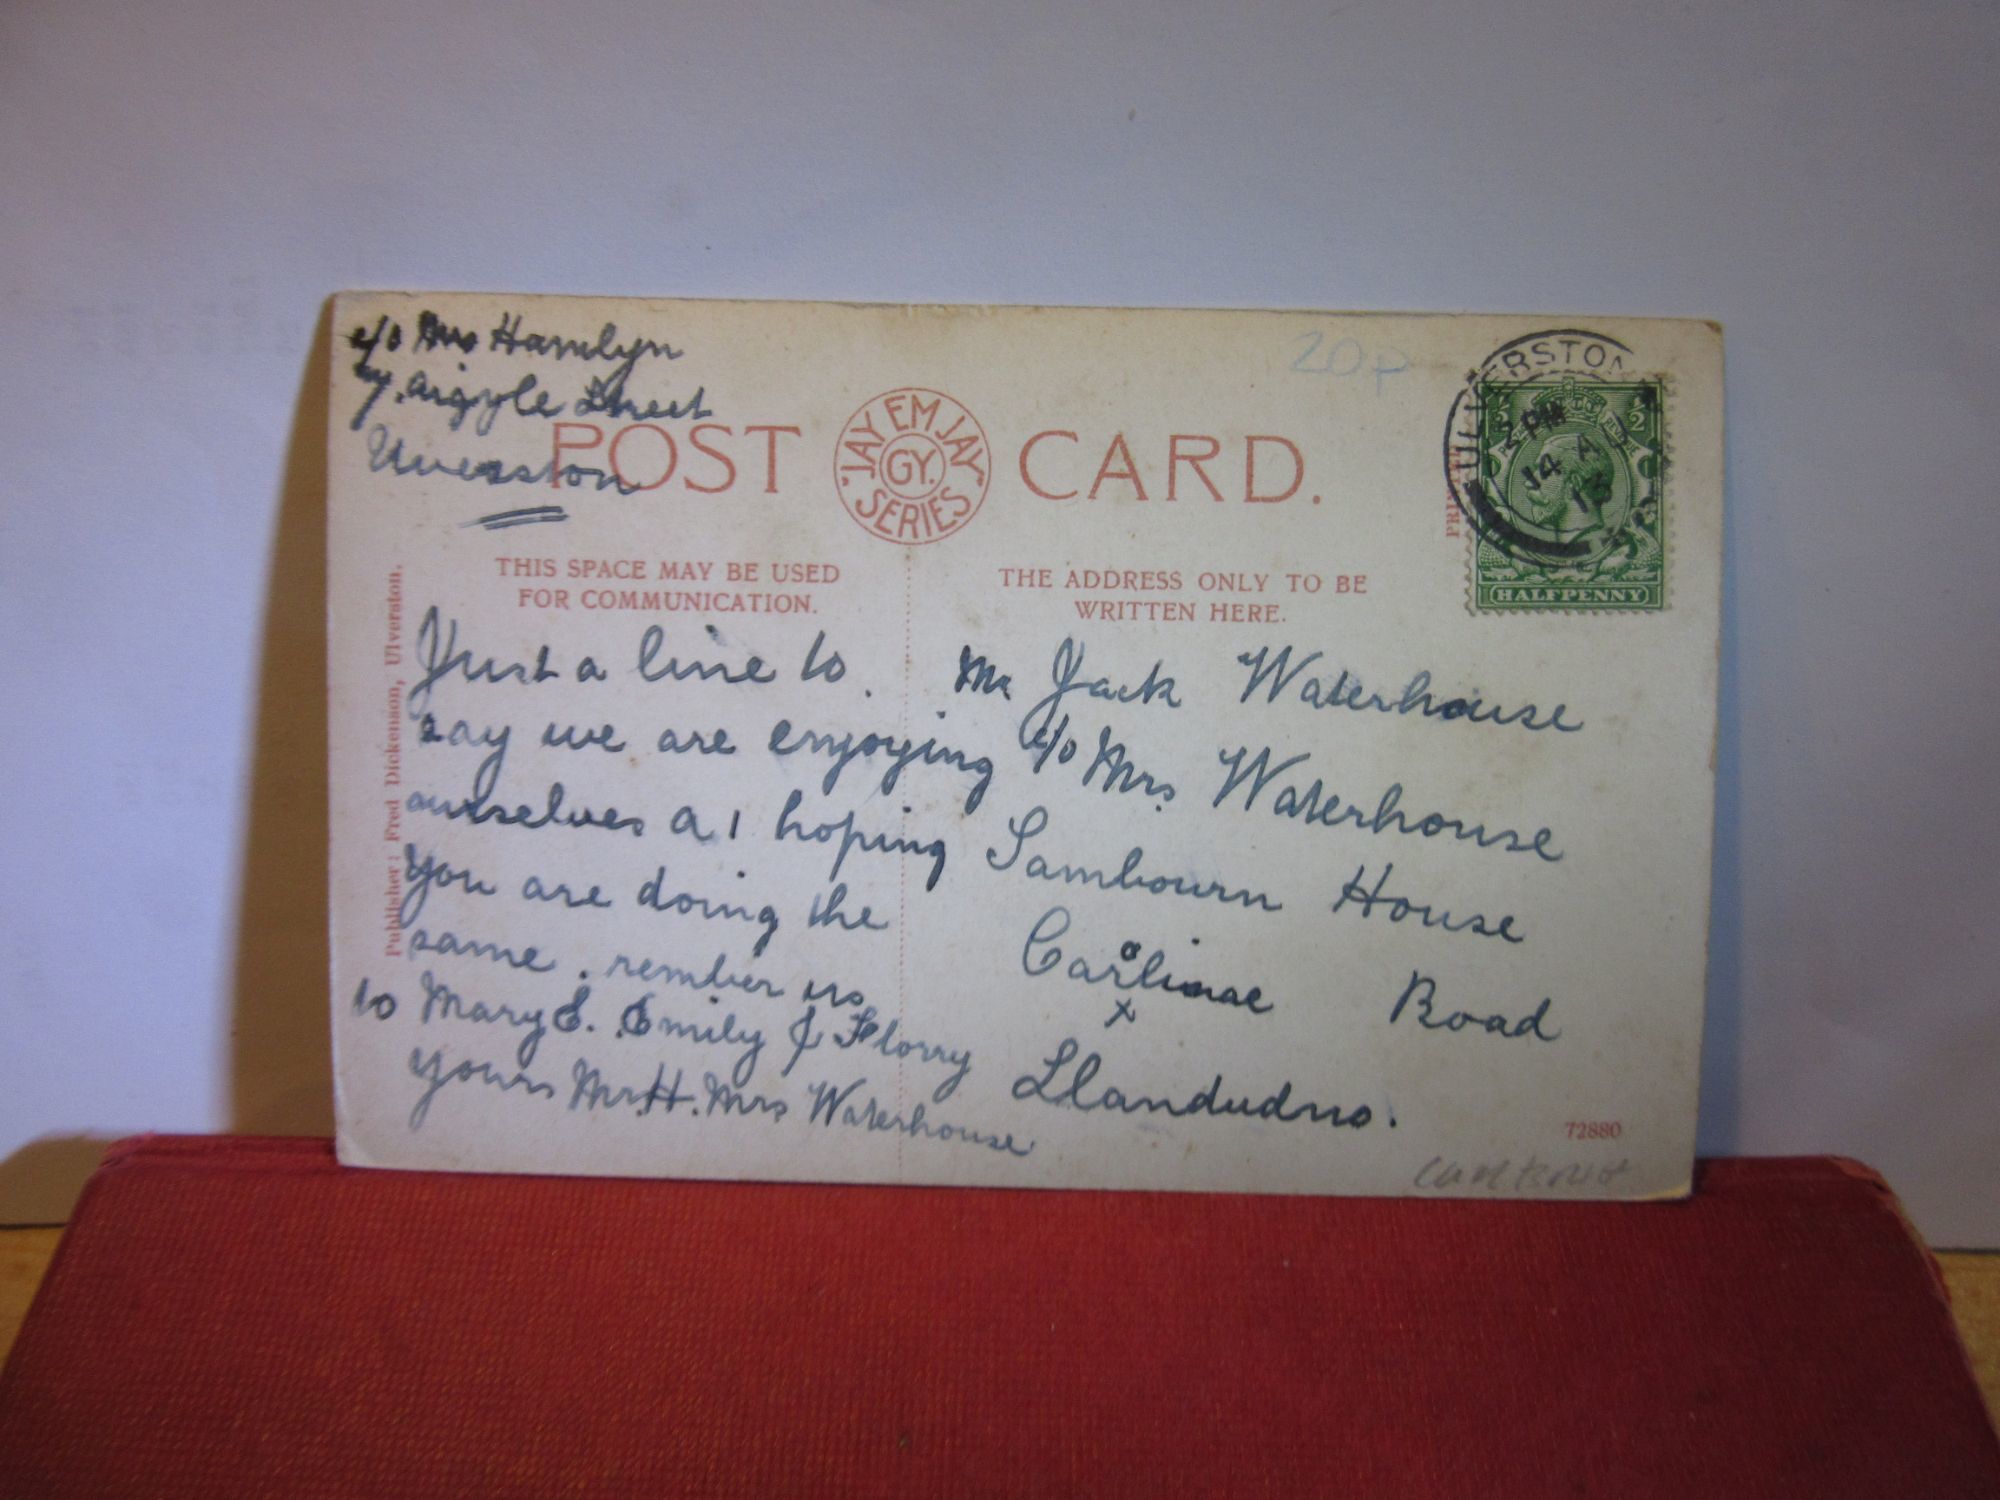 c/o Mrs Hamlyn
7. Argyle Street
Ulverston
POST CARD.
JAY EM JAY
GY.
SERIES
20p
ULVERSTON
2 PM
14 A
13
HALFPENNY
THIS SPACE MAY BE USED
FOR COMMUNICATION.
THE ADDRESS ONLY TO BE
WRITTEN HERE.
Publisher: Fred Dickenson, Ulverston.
Just a line to
say we are enjoying
ourselves a 1 hoping
you are doing the
same. rember us
to Mary E. Emily & Florry
yours Mr. H. Mrs Waterhouse
Mr Jack Waterhouse
c/o Mrs. Waterhouse
Sambourn House
Road
Llandudno.
72880